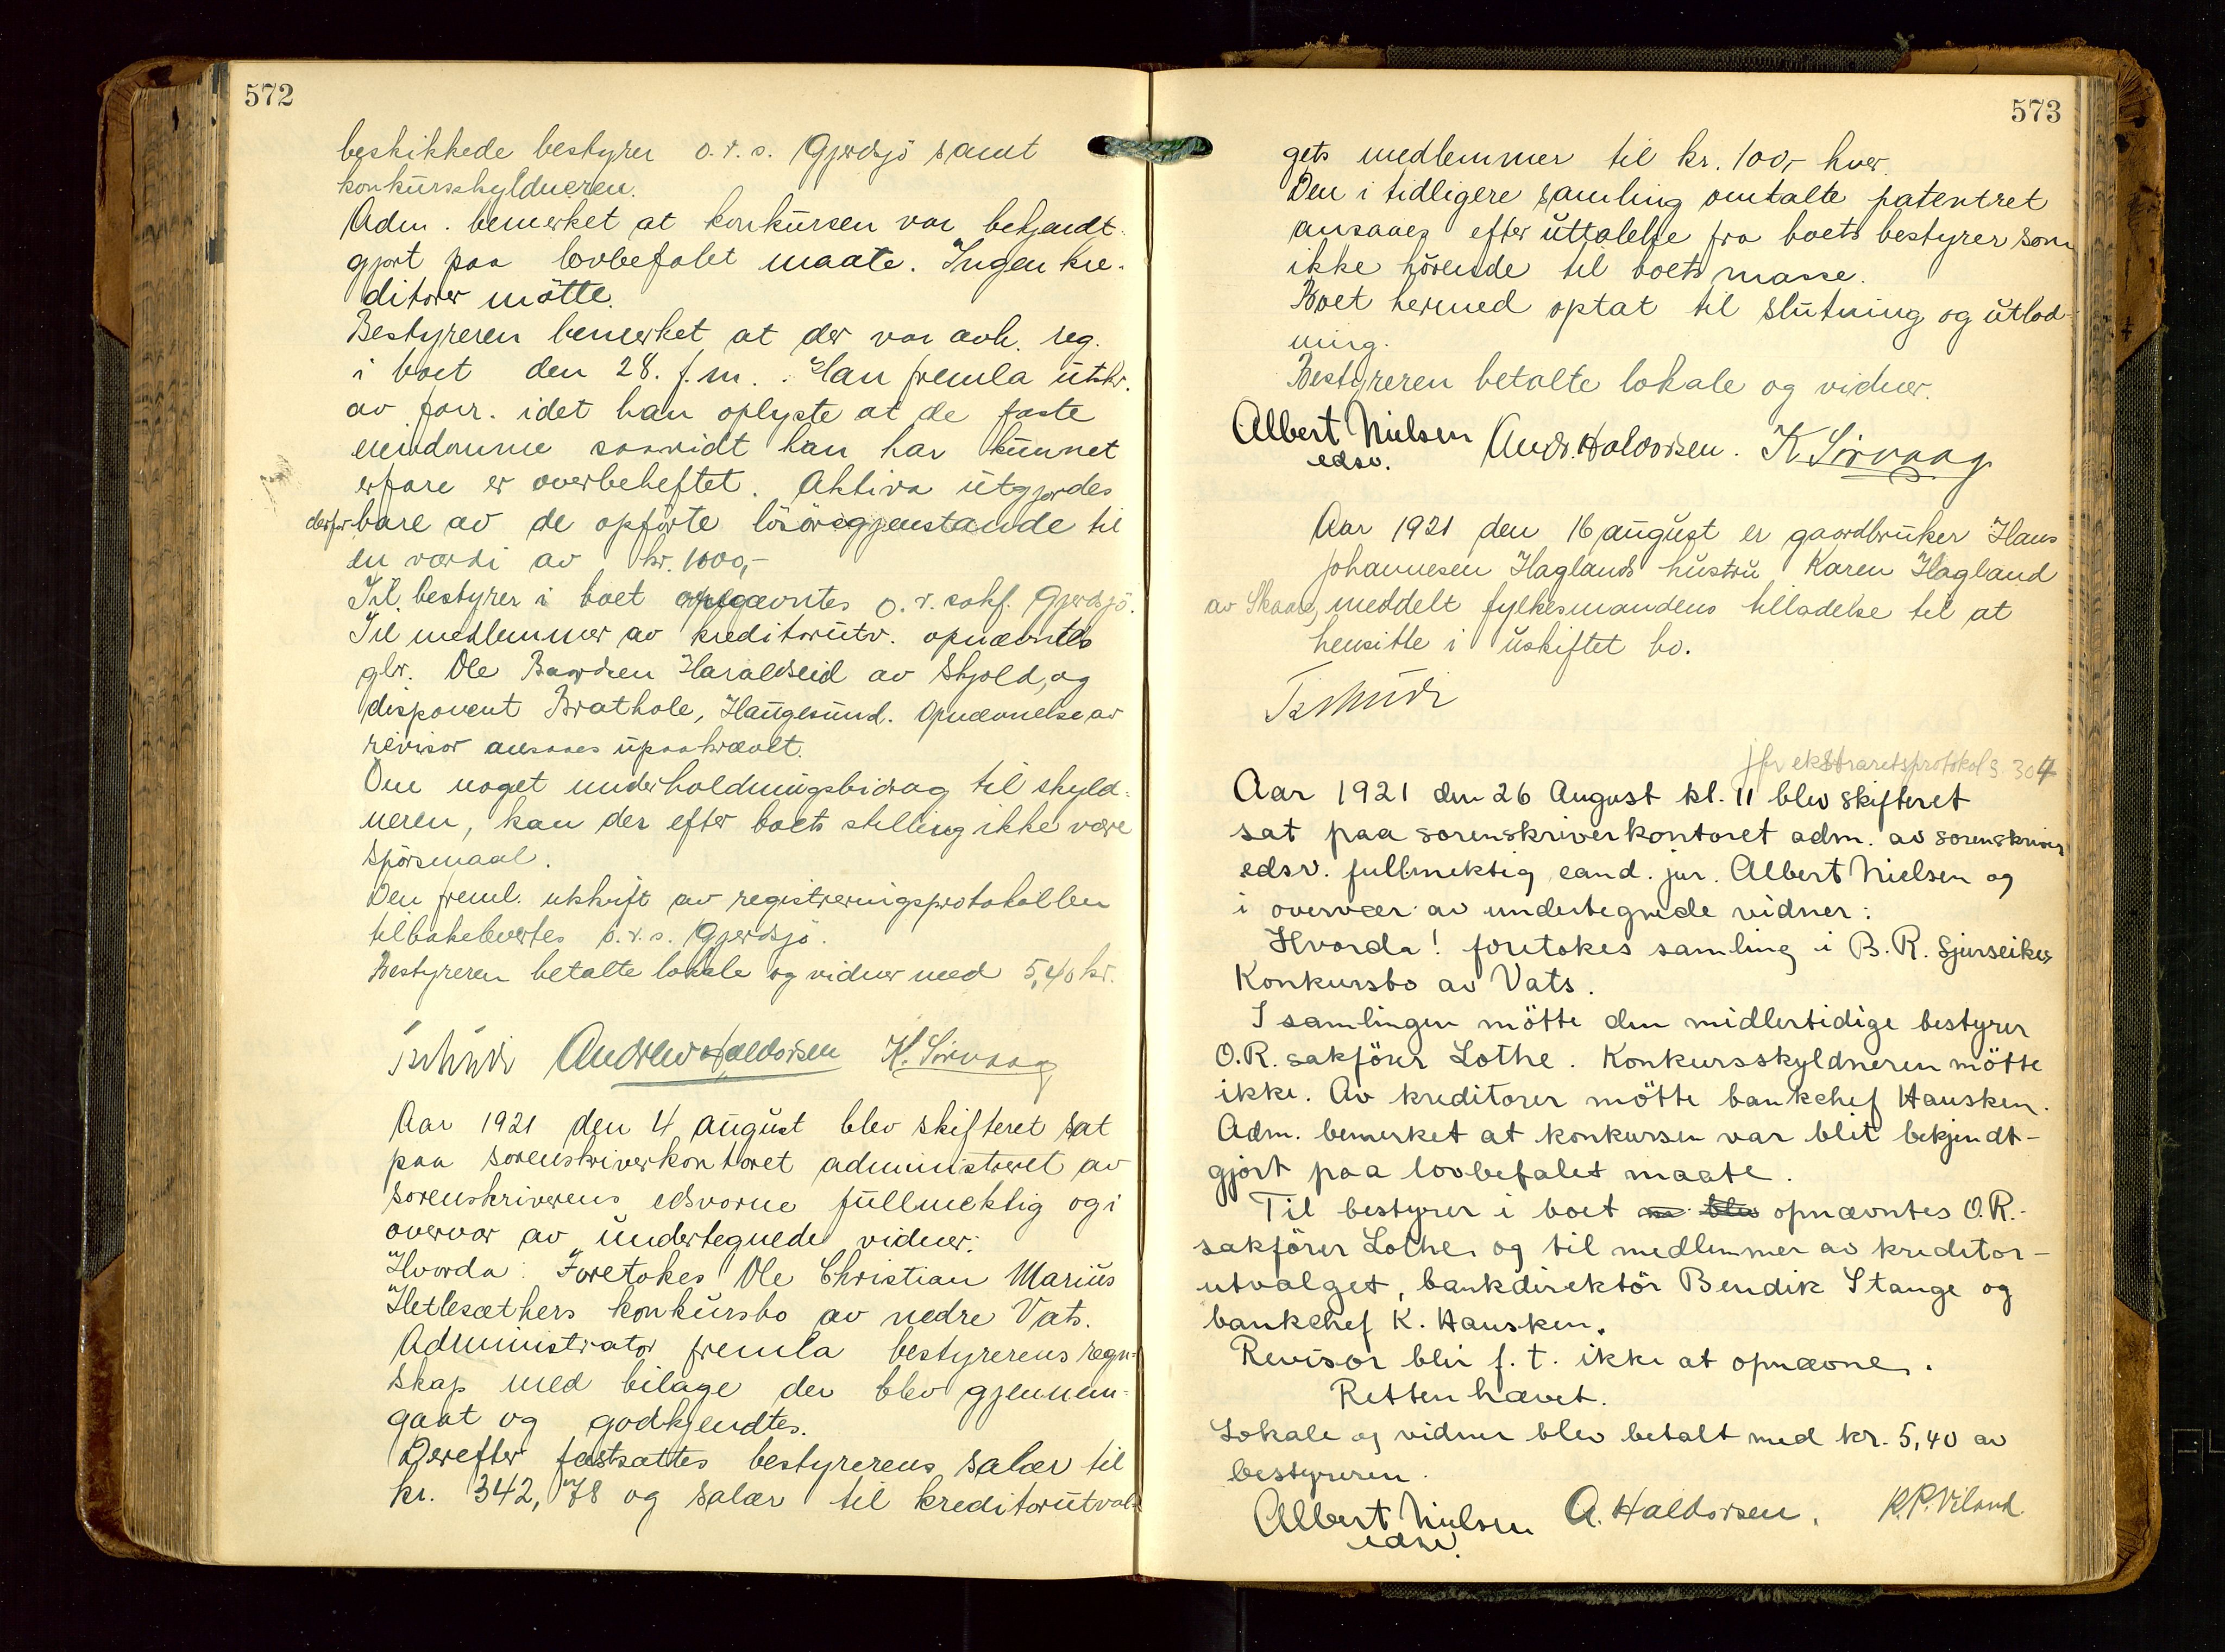 572
beskikkede bestyrer o.r.s. Gjerdsjö samt
konkursskyldneren.
Adm. bemerket at konkursen var bekjendt-
gjort paa lovbefalet maate. Ingen kre-
ditorer mötte.
Bestyreren bemerket at der var avh. reg.
i boet den 28. f.m. Han fremla utskr.
av forr. idet han oplyste at de faste
eiendomme saavidt han har kunnet
erfare er overbeheftet. Aktiva utgjordes
derfor bare av de opförte lösöregjenstande til
en værdi av kr. 1000,-
Til bestyrer i boet opnævntes o.r.sakf. Gjerdsjö.
Til medlemmer av kreditorutv. opnævntes
gbr. Ole Baardsen Haraldseid av Skjold, og
disponent Brathole, Haugesund. Opnævnelse av
revisor ansaaes upaakrævet.
Om noget underholdningsbidrag til skyld-
neren, kan der efter boets stilling ikke være
spörsmaal.
Den freml. utskrift av registreringsprotokollen
tilbakelevertes o.r.s. Gjerdsjö.
Bestyreren betalte lokale og vidner med 5,40 kr.
Tschudi Andrew Haldorsen K. Sörvaag
Aar 1921 den 4 august blev skifteret sat
paa sorenskriverkontoret administreret av
sorenskriverens edsvorne fullmektig og i
overvær av undertegnede vidner:
Hvorda: Foretokes Ole Christian Marius
Hetlesæthers konkursbo av nedre Vats.
Administrator fremla bestyrerens regn-
skap med bilage der blev gjennem-
gaat og godkjendtes.
Derefter fastsattes bestyrerens salær til
kr. 342,78 og salær til kreditorutval-
573
gets medlemmer til kr. 100,- hver.
Den i tidligere samling omtalte patentret
ansaaes efter uttalelse fra boets bestyrer som
ikke hörende til boets masse.
Boet hermed optat til slutning og utlod-
ning.
Bestyreren betalte lokale og vidner.
Albert Nielsen Andr. Haldorsen. K. Sörvaag
edsv.
Aar 1921 den 16 august er gaardbruker Hans
Johannesen Haglands hustru Karen Hagland
av Skaare, meddelt fylkesmandens tilladelse til at
hensitte i uskiftet bo.
Tschudi
jfr ekstraretsprotokol s. 304
Aar 1921 den 26 August kl. 11 blev skifteret
sat paa sorenskriverkontoret adm. av sorenskriver
edsv. fullmektig cand. jur. Albert Nielsen og
i overvær av undertegnede vidner:
Hvorda! foretokes samling i B. R. Sjurseikes
Konkursbo av Vats.
I samlingen mötte den midlertidige bestyrer
O.R. sakförer Lothe. Konkursskyldneren mötte
ikke. Av kreditorer mötte bankchef Hausken.
Adm. bemerket at konkursen var blit bekjendt-
gjort paa lovbefalet maate.
Til bestyrer i boet blev opnævntes O.R.-
sakförer Lothe og til medlemmer av kreditor-
utvalget, bankdirektör Bendik Stange og
bankchef K. Hausken.
Revisor blir f. t. ikke at opnævne.
Retten hævet.
Lokale og vidner blev betalt med kr. 5,40 av
bestyreren.
Albert Nielsen A. Haldorsen. K.P. Viland.
edsv.